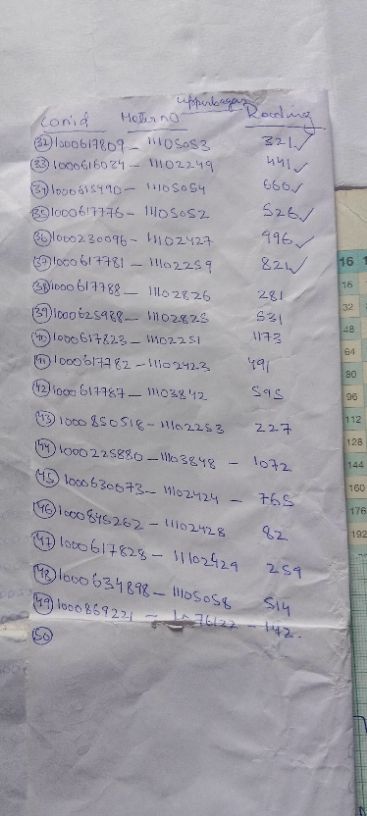 upperbagar
Con id Meter no Reading
32 1000617809 - 11105053 321 ✓
33 1000616034 - 11102249 441 ✓
34 1000615490 - 11105054 660 ✓
35 1000617776 - 11105052 526 ✓
36 1000230096 - 11102427 996 ✓
37 1000617781 - 11102259 821 ✓
38 1000617788 - 11102826 281
39 1000625988 - 11102825 531
40 1000617823 - 11102251 1173
41 1000617782 - 11102423 491
42 1000617787 - 11103842 595
43 1000850518 - 11102253 227
44 1000225880 - 11103848 - 1072
45 1000630073 - 11102424 - 765
46 1000845262 - 11102428 82
47 1000617828 - 11102429 259
48 1000634898 - 11105058 514
49 1000869221 - 76122 - 142.
50
16 1
16
32
48
64
80
96
112
128
144
160
176
192